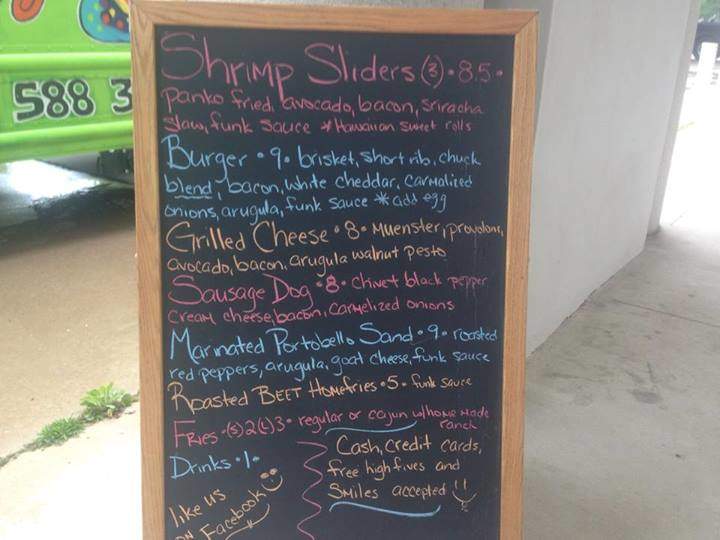 588 3
Shrimp Sliders (3) • 8.5 •
panko fried, avocado, bacon, sriracha
slaw, funk sauce * Hawaiian sweet rolls
Burger • 9 • brisket, short rib, chuck
blend, bacon, white cheddar, carmalized
onions, arugula, funk sauce * add egg
Grilled Cheese • 8 • Muenster, provolone,
avocado, bacon, arugula walnut pesto
Sausage Dog • 8 • chive + black pepper
cream cheese, bacon, carmelized onions
Marinated Portobello Sand • 9 • roasted
red peppers, arugula, goat cheese, funk sauce
Roasted BEET Homefries • 5 • funk sauce
FRIES • (S) 2 (L) 3 • regular or cajun w/home made
ranch
Drinks • 1 •
like us
ON Facebook
Cash, credit cards,
free high fives and
Smiles accepted !!